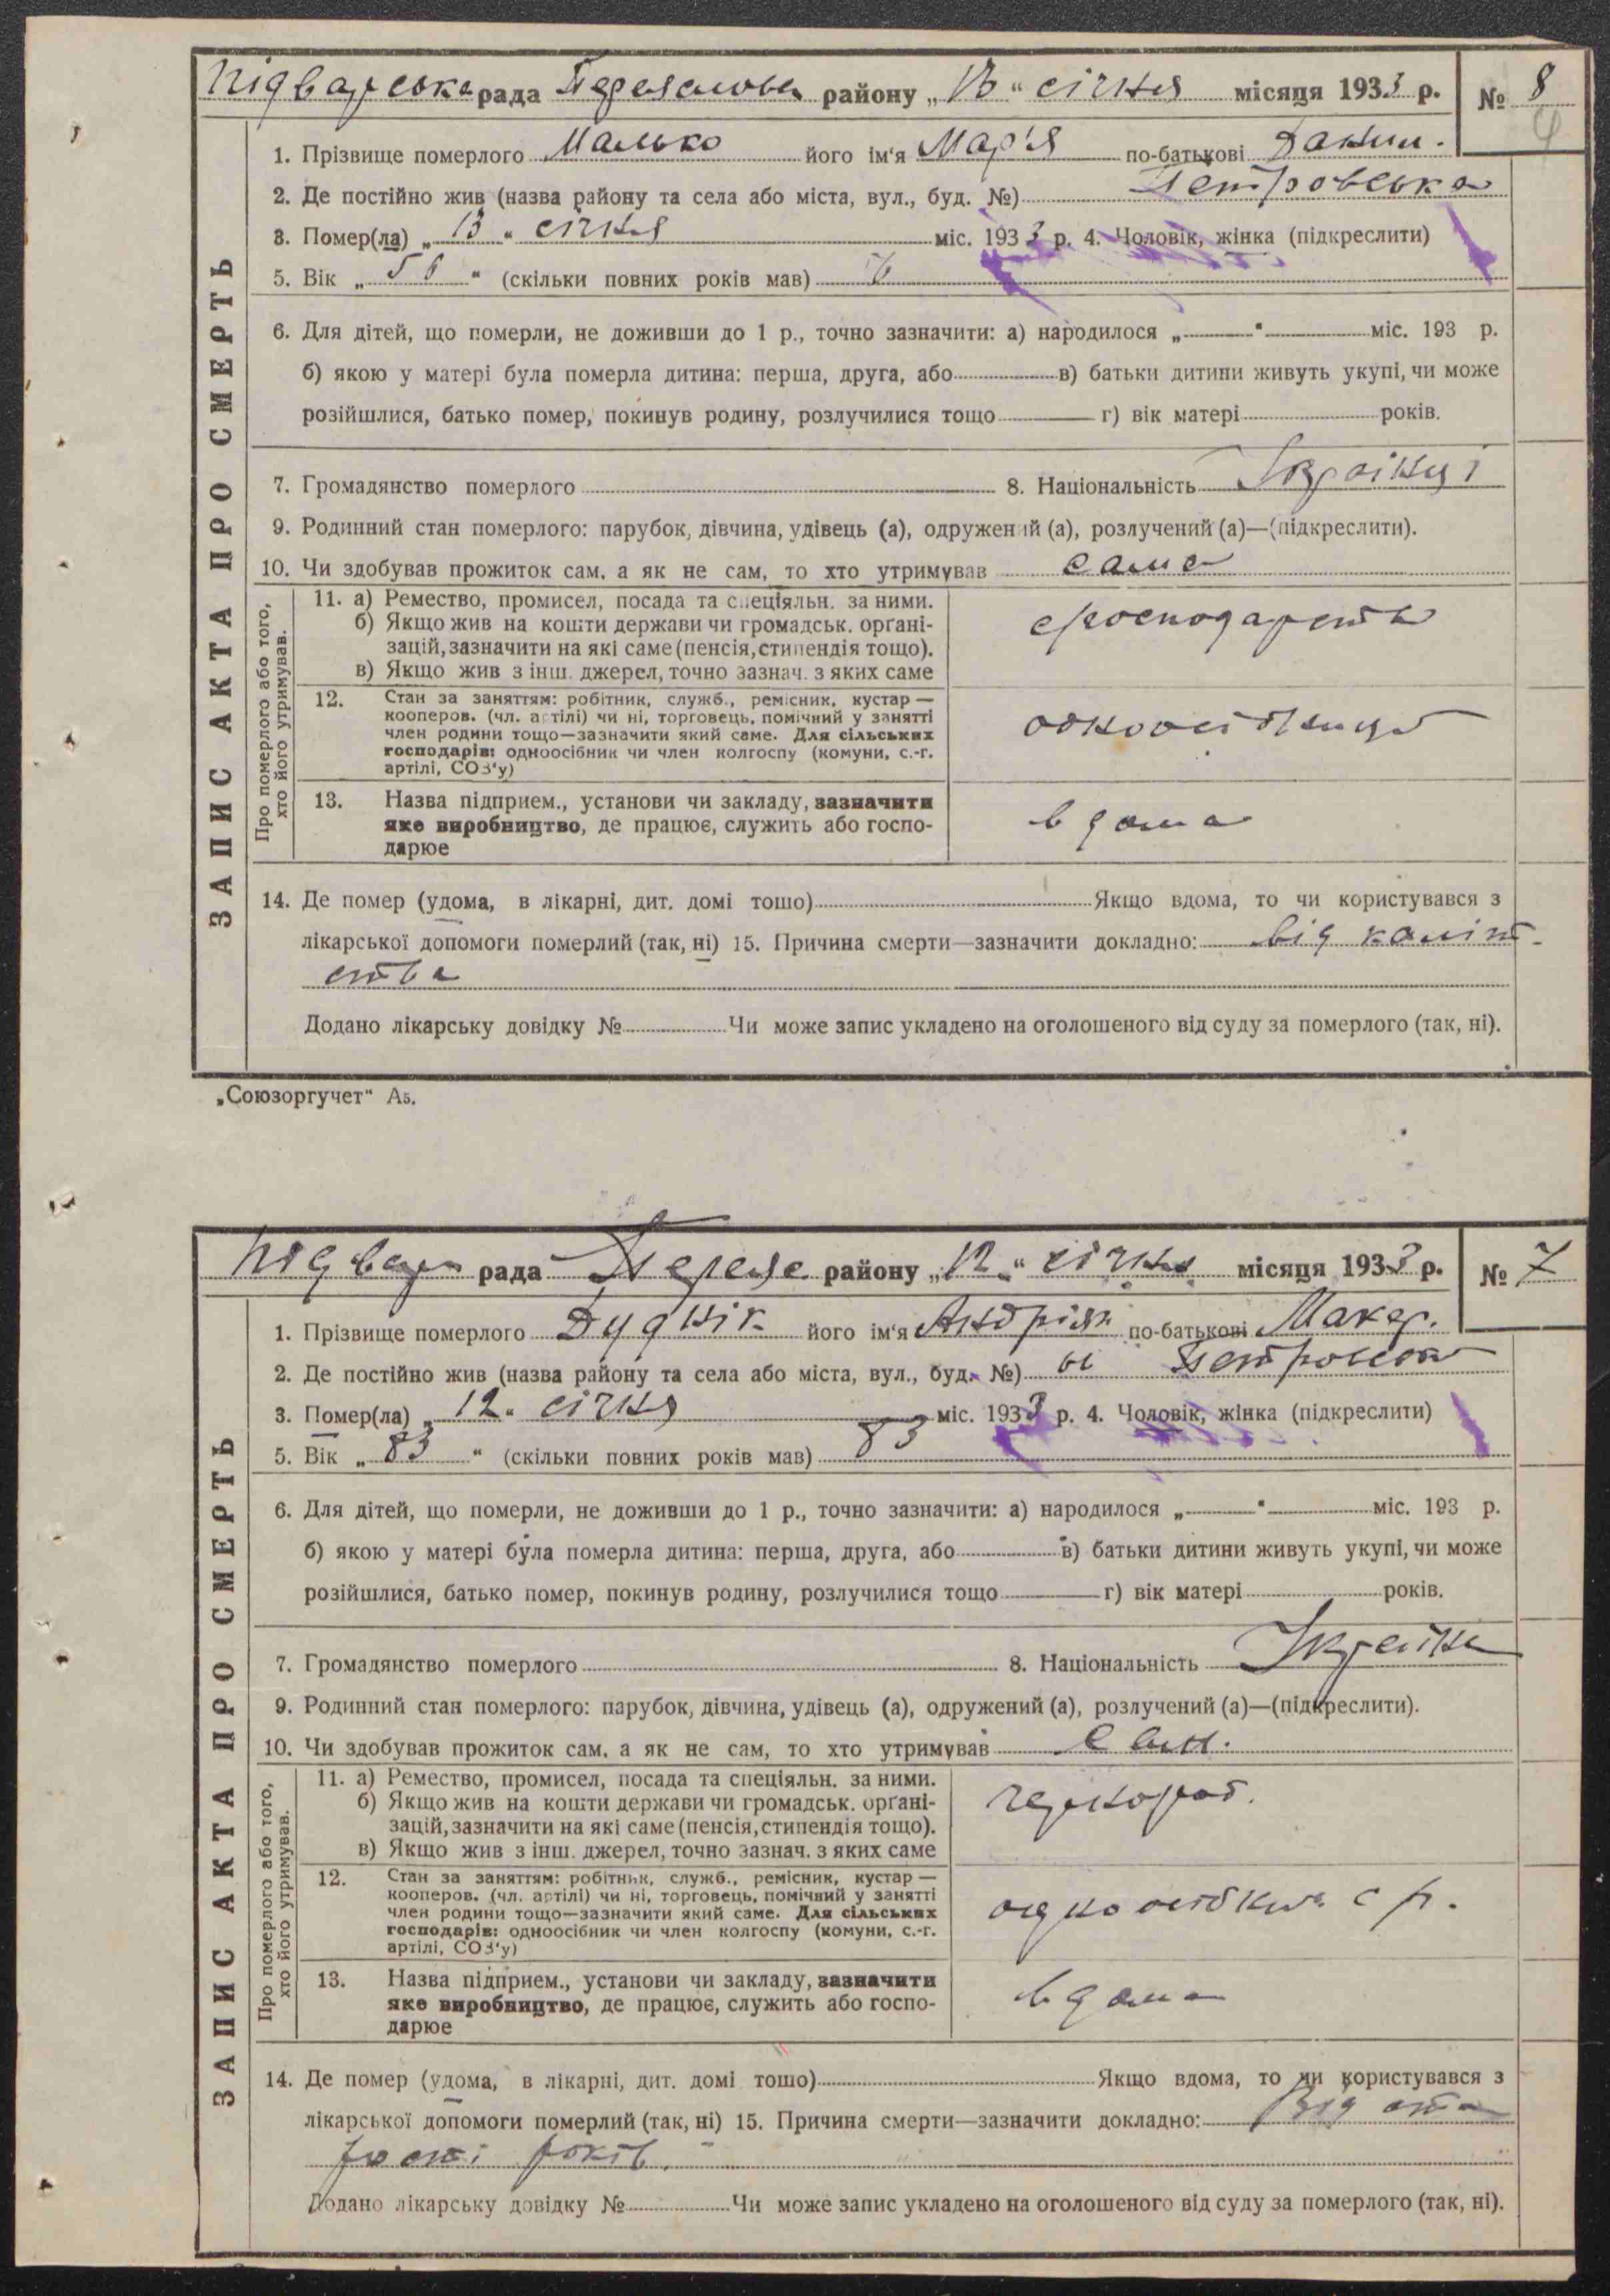 Підварська рада Переяслов. району „13“ січня місяця 1933 р. № 8
4
1. Прізвище померлого Малько його ім‘я Мар'я по-батькові Данил.
2. Де постійно жив (назва району та села або міста, вул., буд. №) Петровська
3. Помер(ла) „13“ січня міс. 1933 р. 4. Чоловік, жінка (підкреслити)
5. Вік „56“ (скільки повних років мав)
6. Для дітей, що померли, не доживши до 1 р., точно зазначити: а) народилося „ “ міс. 193 р.
б) якою у матері була померла дитина: перша, друга, або в) батьки дитини живуть укупі, чи може
розійшлися, батько помер, покинув родину, розлучилися тощо г) вік матері років.
7. Громадянство померлого 8. Національність
9. Родинний стан померлого: парубок, дівчина, удівець (а), одружений (а), розлучений (а)—(підкреслити).
10. Чи здобував прожиток сам, а як не сам, то хто утримував сама
ЗАПИС АКТА ПРО СМЕРТЬ
Про померлого або того,
хто його утримував.
11. а) Ремество, промисел, посада та спеціяльн. за ними.
б) Якщо жив на кошти держави чи громадськ. орґані-
зацій, зазначити на які саме (пенсія, стипендія тощо).
в) Якщо жив з інш. джерел, точно зазнач. з яких саме
12. Стан за заняттям: робітник, служб., ремісник, кустар —
кооперов. (чл. артілі) чи ні, торговець, помічний у занятті
член родини тощо—зазначити який саме. Для сільських
господарів: одноосібник чи член колгоспу (комуни, с.-г.
артілі, СОЗ‘у)
13. Назва підприєм., установи чи закладу, зазначити
яке виробництво, де працює, служить або госпо-
дарює
вдома
14. Де помер (удома, в лікарні, дит. домі тошо) Якщо вдома, то чи користувався з
лікарської допомоги померлий (так, ні) 15. Причина смерти—зазначити докладно: від каліт-
ства
Додано лікарську довідку № Чи може запис укладено на оголошеного від суду за померлого (так, ні).
„Союзоргучет“ А5.
Підвар рада Перея району „12“ січня місяця 1933 р. № 7
1. Прізвище померлого Дуднік його ім‘я Андріян по-батькові Макар.
2. Де постійно жив (назва району та села або міста, вул., буд. №)
3. Помер(ла) „12“ січня міс. 1933 р. 4. Чоловік, жінка (підкреслити)
5. Вік „83“ (скільки повних років мав) 83
6. Для дітей, що померли, не доживши до 1 р., точно зазначити: а) народилося „ “ міс. 193 р.
б) якою у матері була померла дитина: перша, друга, або в) батьки дитини живуть укупі, чи може
розійшлися, батько помер, покинув родину, розлучилися тощо г) вік матері років.
7. Громадянство померлого 8. Національність
9. Родинний стан померлого: парубок, дівчина, удівець (а), одружений (а), розлучений (а)—(підкреслити).
10. Чи здобував прожиток сам, а як не сам, то хто утримував
ЗАПИС АКТА ПРО СМЕРТЬ
Про померлого або того,
хто його утримував.
11. а) Ремество, промисел, посада та спеціяльн. за ними.
б) Якщо жив на кошти держави чи громадськ. орґані-
зацій, зазначити на які саме (пенсія, стипендія тощо).
в) Якщо жив з інш. джерел, точно зазнач. з яких саме
чорнороб.
12. Стан за заняттям: робітник, служб., ремісник, кустар —
кооперов. (чл. артілі) чи ні, торговець, помічний у занятті
член родини тощо—зазначити який саме. Для сільських
господарів: одноосібник чи член колгоспу (комуни, с.-г.
артілі, СОЗ‘у)
13. Назва підприєм., установи чи закладу, зазначити
яке виробництво, де працює, служить або госпо-
дарює
вдома
14. Де помер (удома, в лікарні, дит. домі тошо) Якщо вдома, то чи користувався з
лікарської допомоги померлий (так, ні) 15. Причина смерти—зазначити докладно: Від ста
рості років.
Додано лікарську довідку № Чи може запис укладено на оголошеного від суду за померлого (так, ні).